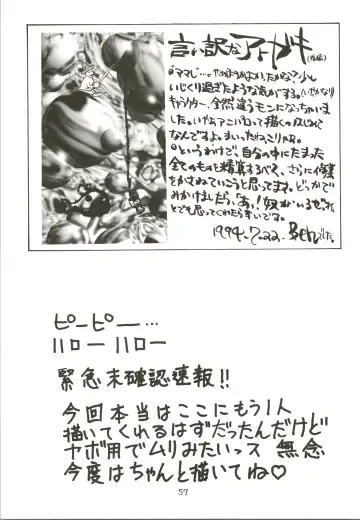 言い訳なアトガキ(後編)
"ママレ"…。やめたほうがよかったかな?少し
いじくり過ぎたような気がする。(いやかなり)
キャラクター、全然違うモンになっちゃいま
した。いやあアニパロって描くのはじめて
なんですよ。まいったねこりゃあ。
というわけで、自分の中にたまった
全てのものを精算するべく、さらに修業
をかさねていこうと思ってます。どっかで
みかけましたら、"あ!奴がいるぜ"
とでも思ってくれたら幸いです。
1994.7.22. Benでした。
ピーピー…
ハロー ハロー
緊急未確認速報!!
今回本当はここにもう1人
描いてくれるはずだったんだけど
ヤボ用でムリみたいっス 無念
今度はちゃんと描いてね♡
57